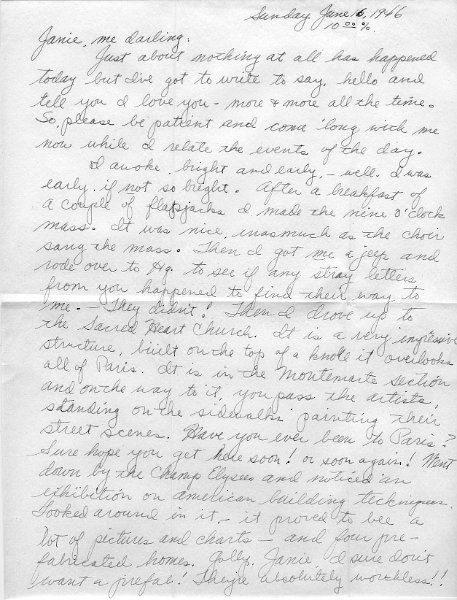 Sunday June 16, 1946
10 00 %.
Janie, me darling:
Just about nothing at all has happened
today but I've got to write to say hello and
tell you I love you - more & more all the time.
So, please be patient and come 'long with me
now while I relate the events of the day.
I awoke bright and early, - well I was
early, if not so bright. After a breakfast of
a couple of flapjacks I made the nine o'clock
mass. It was nice, inasmuch as the choir
sang the mass. Then I got me a jeep and
rode over to Hq. to see if any stray letters
from you happened to find their way to
me. - They didn't! Then I drove up to
the Sacred Heart Church. It is a very impressive
structure, built on the top of a knole it overlooks
all of Paris. It is in the Montemarte section
and on the way to it, you pass the artists,
standing on the sidewalks painting their
street scenes. Have you ever been to Paris?
Sure hope you get here soon! or soon again! Went
down by the Champ Elysees and noticed an
exhibition on american building techniques.
Looked around in it, - it proved to bee a
lot of pictures and charts - and four pre-
fabricated homes. Golly, Janie I sure don't
want a prefab! They're absolutely worthless!!